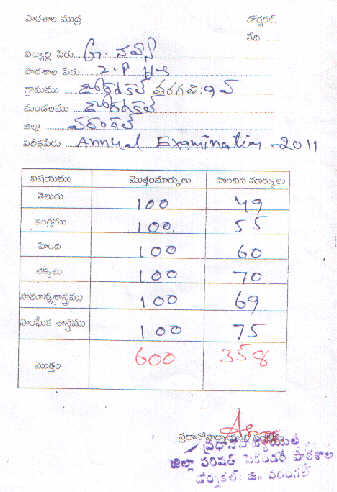 పాఠశాల ముద్ర
విద్యార్థి పేరు G. నవీన్
పాఠశాల పేరు Z. P H-S
గ్రామము
మండలము
జిల్లా వరంగల్
పరీక్షపేరు Annual Examination-2011
విషయము మొత్తంమార్కులు పొందిన మార్కులు
తెలుగు 100 49
ఇంగ్లీషు 100 55
హింది 100 60
లెక్కలు 100 70
సామాన్యశాస్త్రము 100 69
సాంఘీక శాస్త్రము 100 75
మొత్తం 600 358
జిల్లా పరిషత్ సెకండరీ పాఠశాల